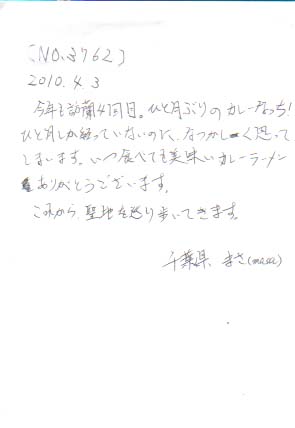 [NO.3762]
2010.4.3
今年も訪蘭4回目。ひと月ぶりのカレーなっち!
ひと月しか経っていないのに、なつかしく思って
しまいます。いつ食べても美味いカレーラーメン
ありがとうございます。
これから聖地を巡り歩いてきます。
千葉県 まさ(masa)